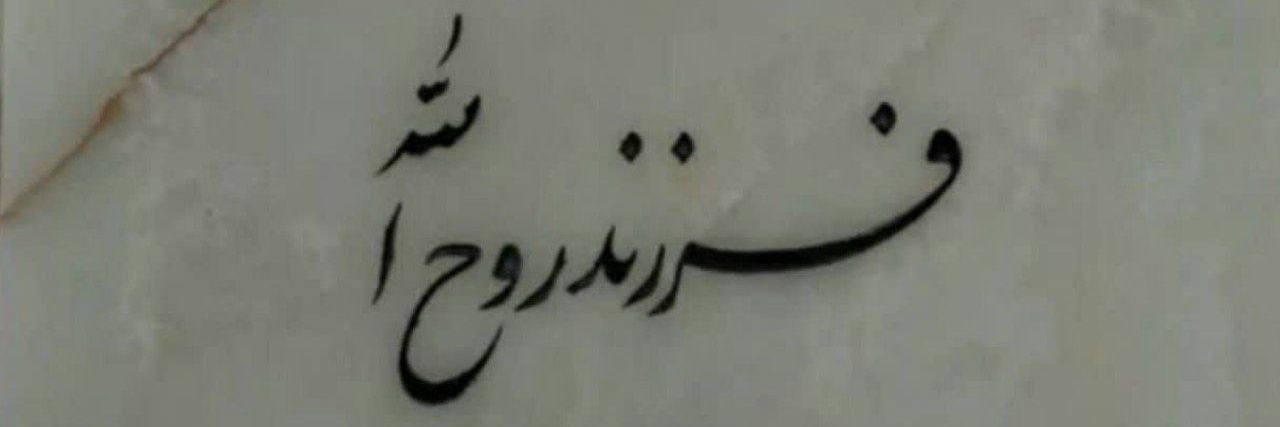 فرزند روح الله